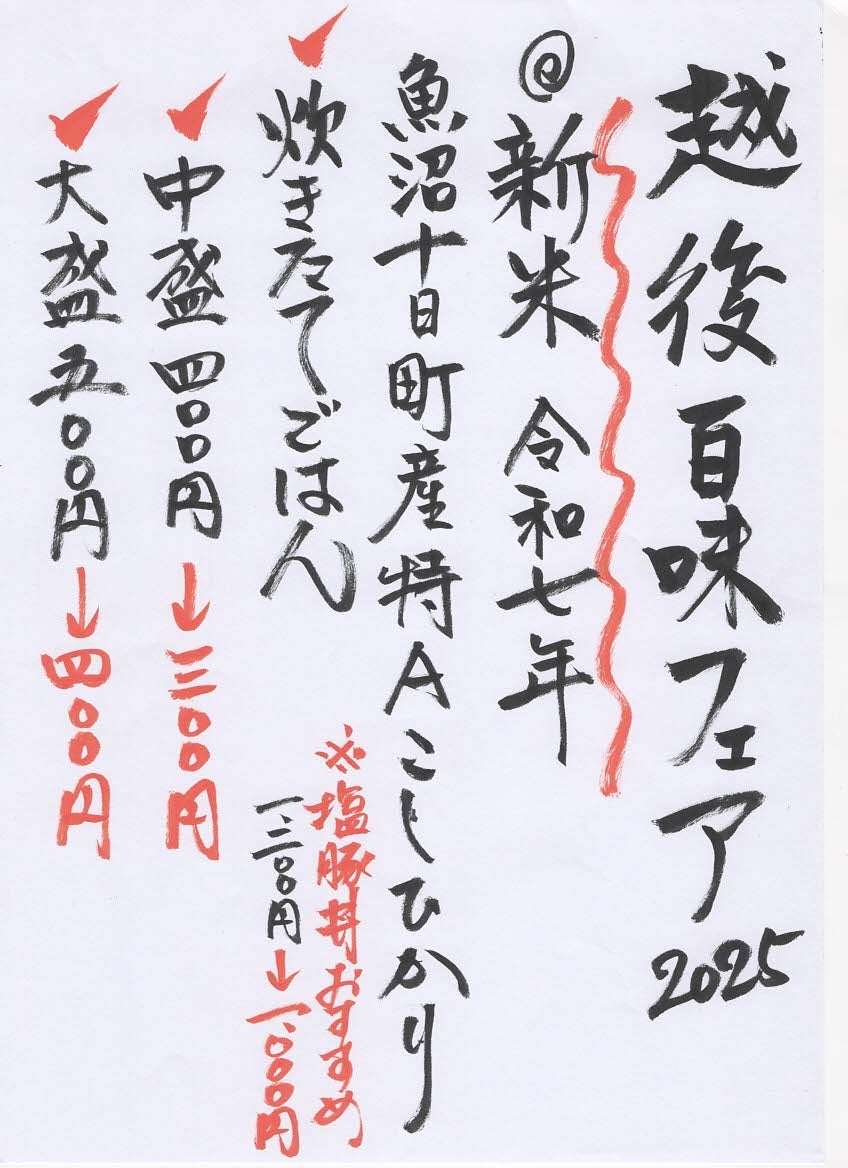 越後百味フェア2025
@新米 令和七年
魚沼十日町産特Aこしひかり
炊きたてごはん
※塩豚丼おすすめ
一、二〇〇円→一、〇〇〇円
中盛四〇〇円→三〇〇円
大盛五〇〇円→四〇〇円